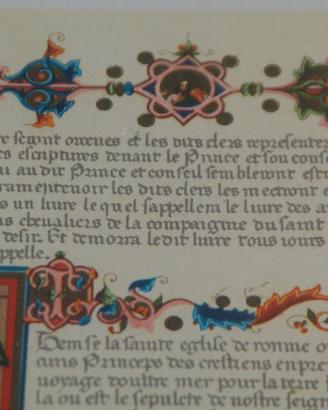 re seront ovenes et les dits clers representer
es escriptures devant le Prince et son cons
i au dit Prince et conseil sembleront est
ramentevoir les dits clers les mectront e
s un livre le quel s'appellera le livre des a
s chevaliers de la compaignie du saint
desir. Et demorra le dit livre tous iours
ppelle.
Item se la sainte eglise de romme o
ains Princeps des crestiens enpre
voyage doultre mer pour la terre s
la ou est le sepulcre de nostre seign